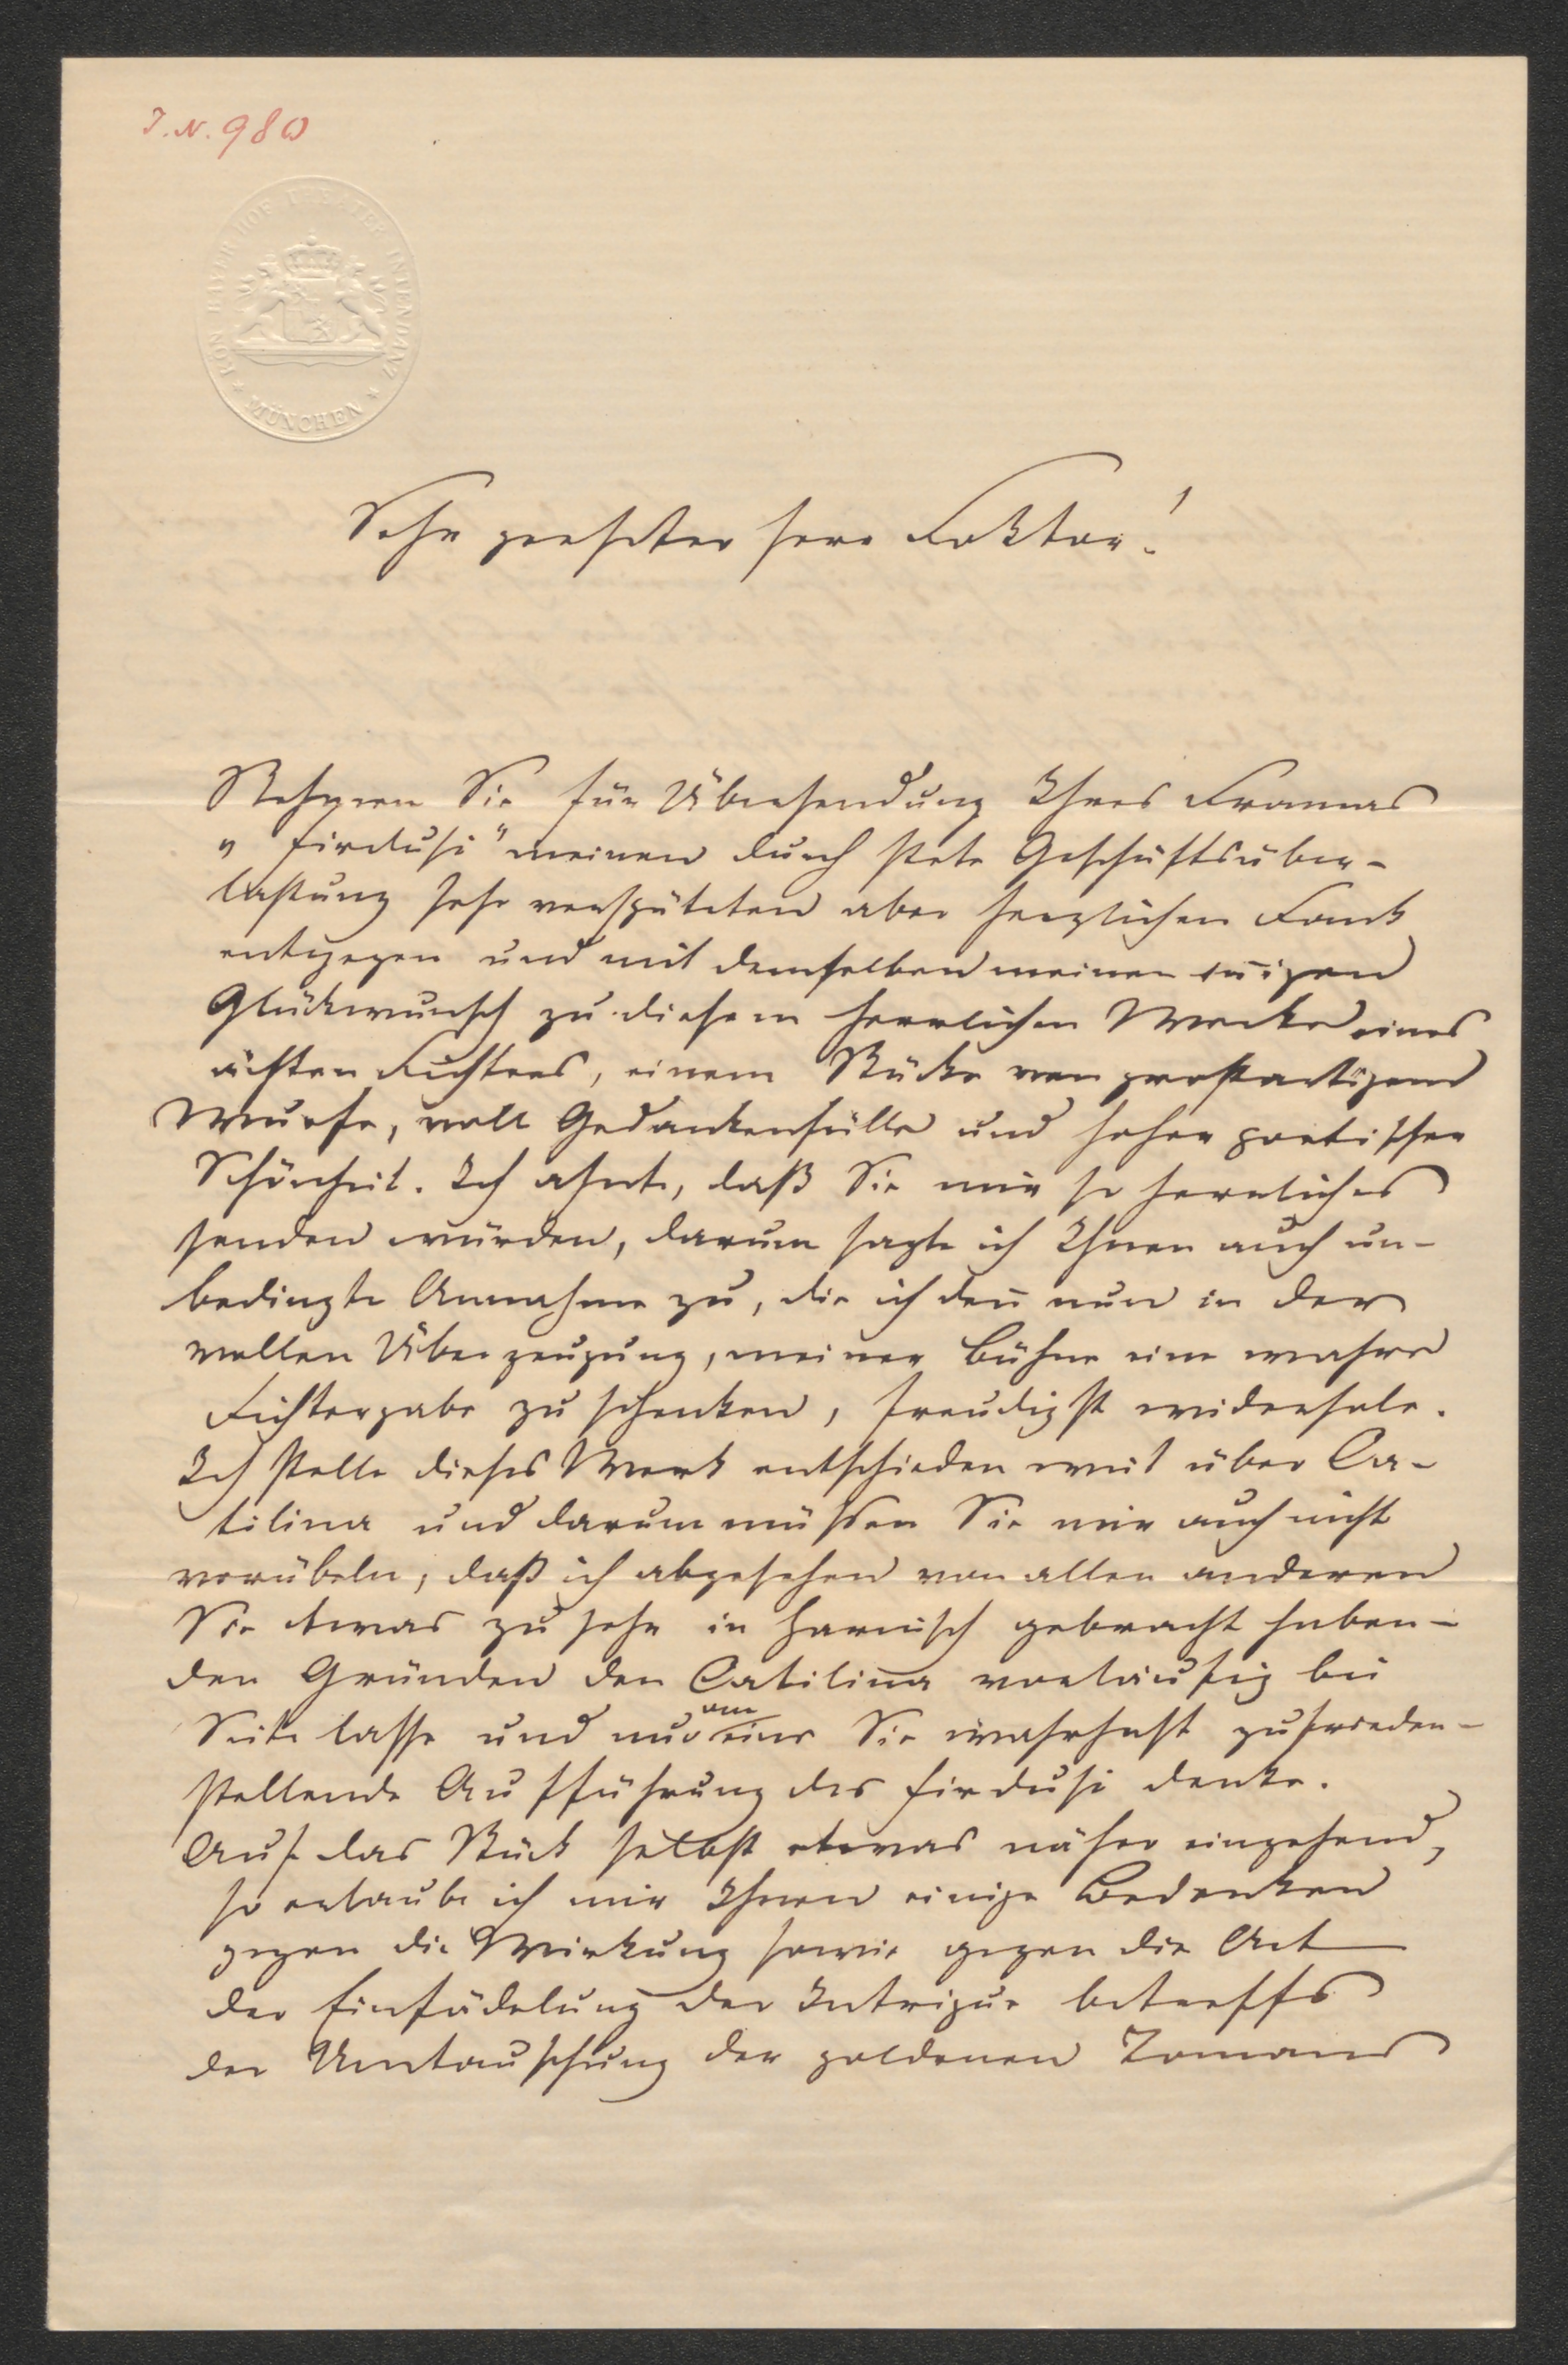 J. N. 980
KÖN BAYER HOF THEATER INTENDANZ
* MÜNCHEN *
Sehr geehrter Herr Doktor!
Nehmen Sie für Übersendung Ihres Dramas
„Firdusi" meinen durch stete Geschäftsüber-
lastung sehr verspäteten aber herzlichen Dank
entgegen und mit demselben meinen iñigen
Glückwunsch zu diesem herrlichen Werke eines
ächten Dichters, einem Stücke von großartigem
Wurfe, voll Gedankenfülle und hoher poetischer
Schönheit. Ich ahnte, daß Sie mir so herrliches
senden würden, darum sagte ich Ihnen auch un-
bedingte Annahme zu, die ich deñ nun in der
vollen Überzeugung, meiner Bühne eine wahre
Dichtergabe zu schenken, freudigst widerhole.
Ich stelle dieses Werk entschieden weit über Ca-
tilina und darum müssen Sie mir auch nicht
verübeln, daß ich abgesehen von allen anderen
Sie etwas zu sehr in Harnisch gebracht haben-
den Gründen den Catilina vorläufig bei
Seite lasse und nur an eine Sie wahrhaft zufrieden-
stellende Aufführung des Firdusi denke.
Auf das Stück selbst etwas näher eingehend,
so erlaube ich mir Ihnen einige Bedenken
gegen die Wirkung sowie gegen die Art
der Einfädelung der Intrigue betreffs
der Umtauschung der goldenen Tomans